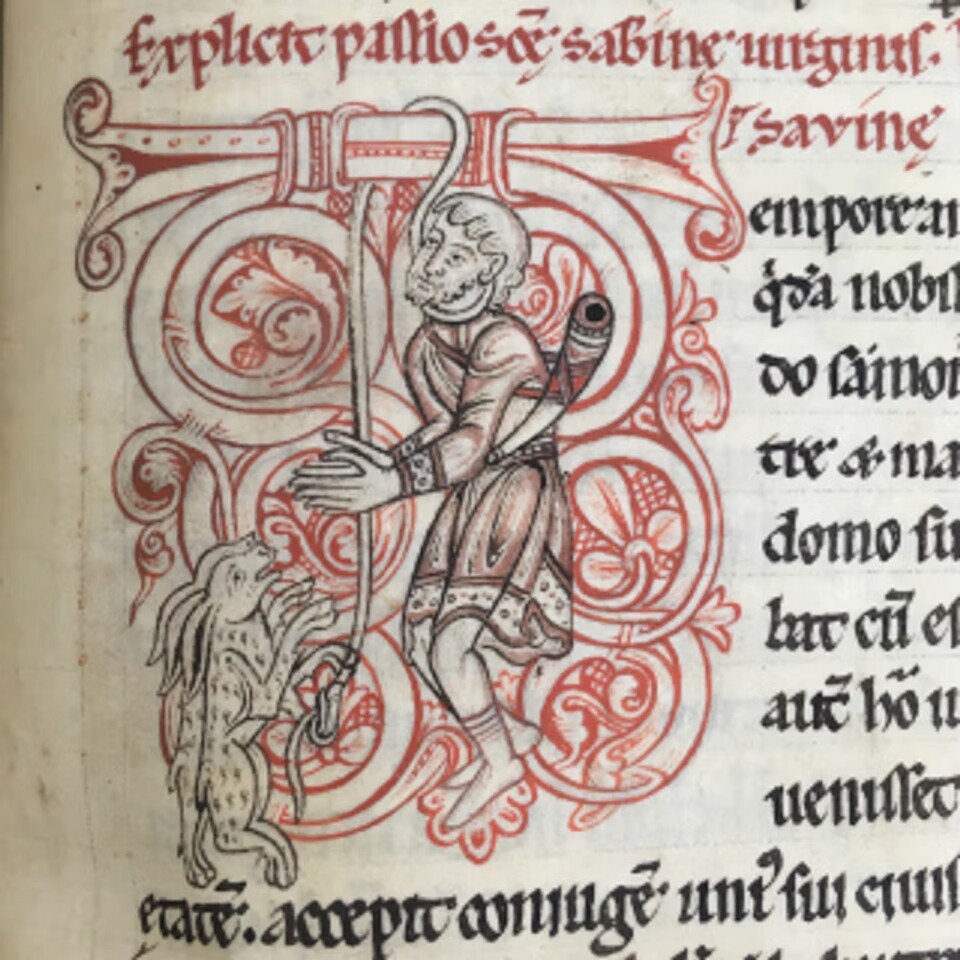 Explicit passio scē sabinę uirginis.
⁊ savinę
empore
q̇dā nobil
do
tre & ma
domo su
bat cū es
aut̄ hō u
uenisset
etatē. accepit coniugē uni᾽ sui ciuis